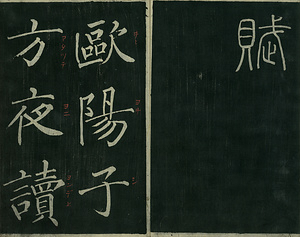 賦
歐陽子
方夜讀